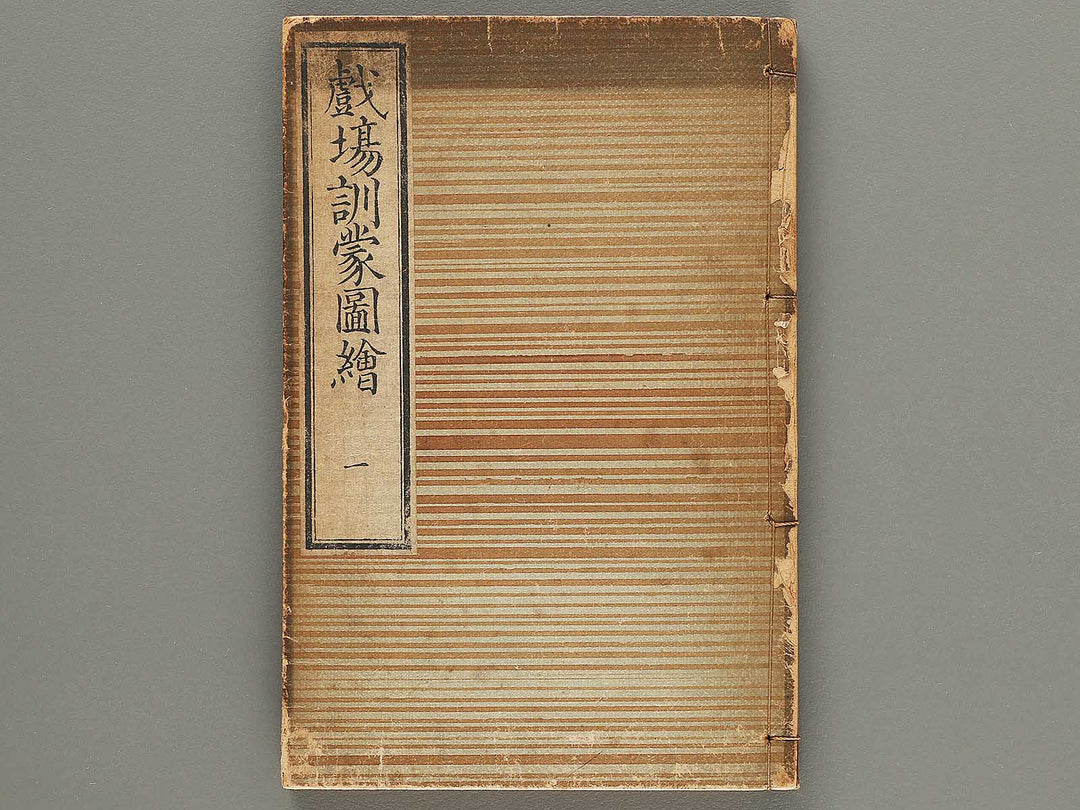 戲場訓蒙圖繪
一